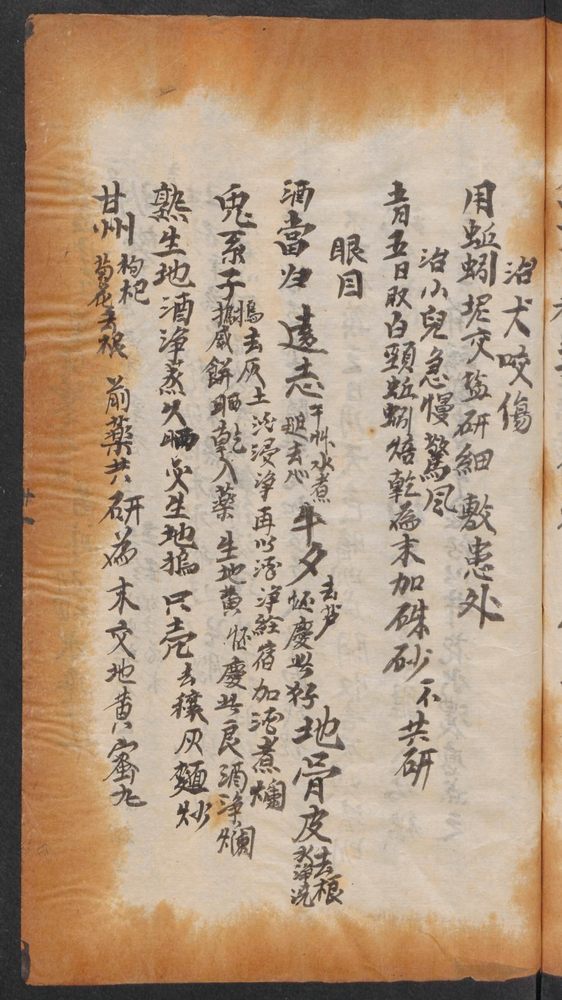 治犬咬傷
用蚯蚓坭交鹽研細敷患外
治小兒急慢驚風
五日取白頸蚯蚓焙乾為末加硃砂 不共研
眼目
酒當归 遠志 甘艸水煮 去心 牛夕 去芦 怀慶 地骨皮 去根 水净洗
兎系子 搗去灰土 酒浸净再以酒净經宿加酒煮爛
餅晒乾入藥 生地黄 怀慶 良酒净爛
熟生地酒净蒸久晒 生地 只壳去穰灰麵炒
甘州枸杞 菊花去根 前藥共研為末交地黄蜜丸